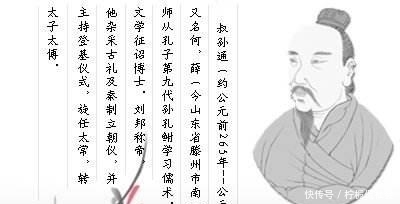 叔孙通（约公元前265年—公元
又名何。薛（今山东省滕州市南
师从孔子第九代孙孔鲋学习儒术。
文学征诏博士。刘邦称帝，
他杂采古礼及秦制立朝仪。并
主持登基仪式。旋任太常。转
太子太傅。
快传号/柠檬